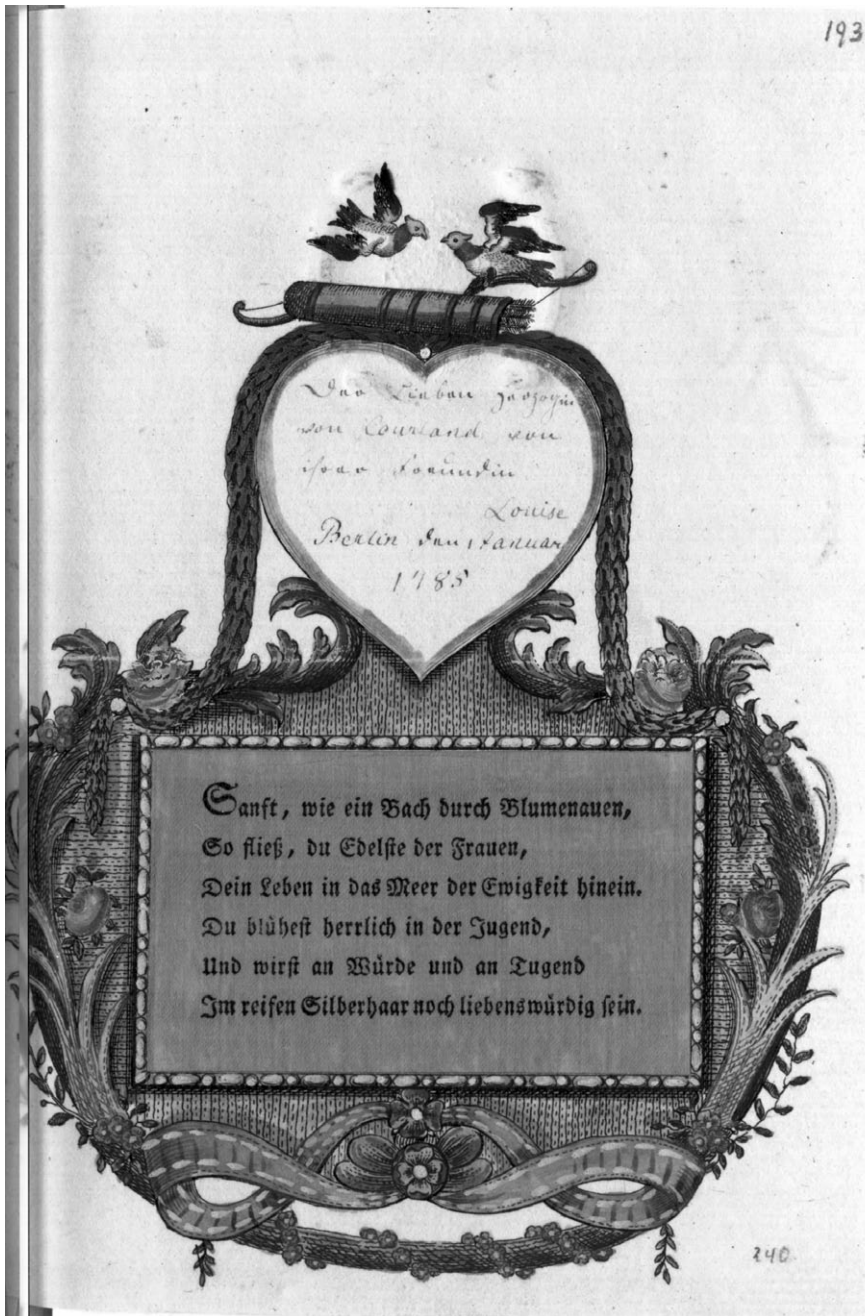 193
Der Lieben Herzogin
von Courland von
ihrer Freundin
Louise
Berlin den 1 Januar
1785
Sanft, wie ein Bach durch Blumenauen,
So fließ, du Edelste der Frauen,
Dein Leben in das Meer der Ewigkeit hinein.
Du blühest herrlich in der Jugend,
Und wirst an Würde und an Tugend
Im reifen Silberhaar noch liebenswürdig sein.
240.